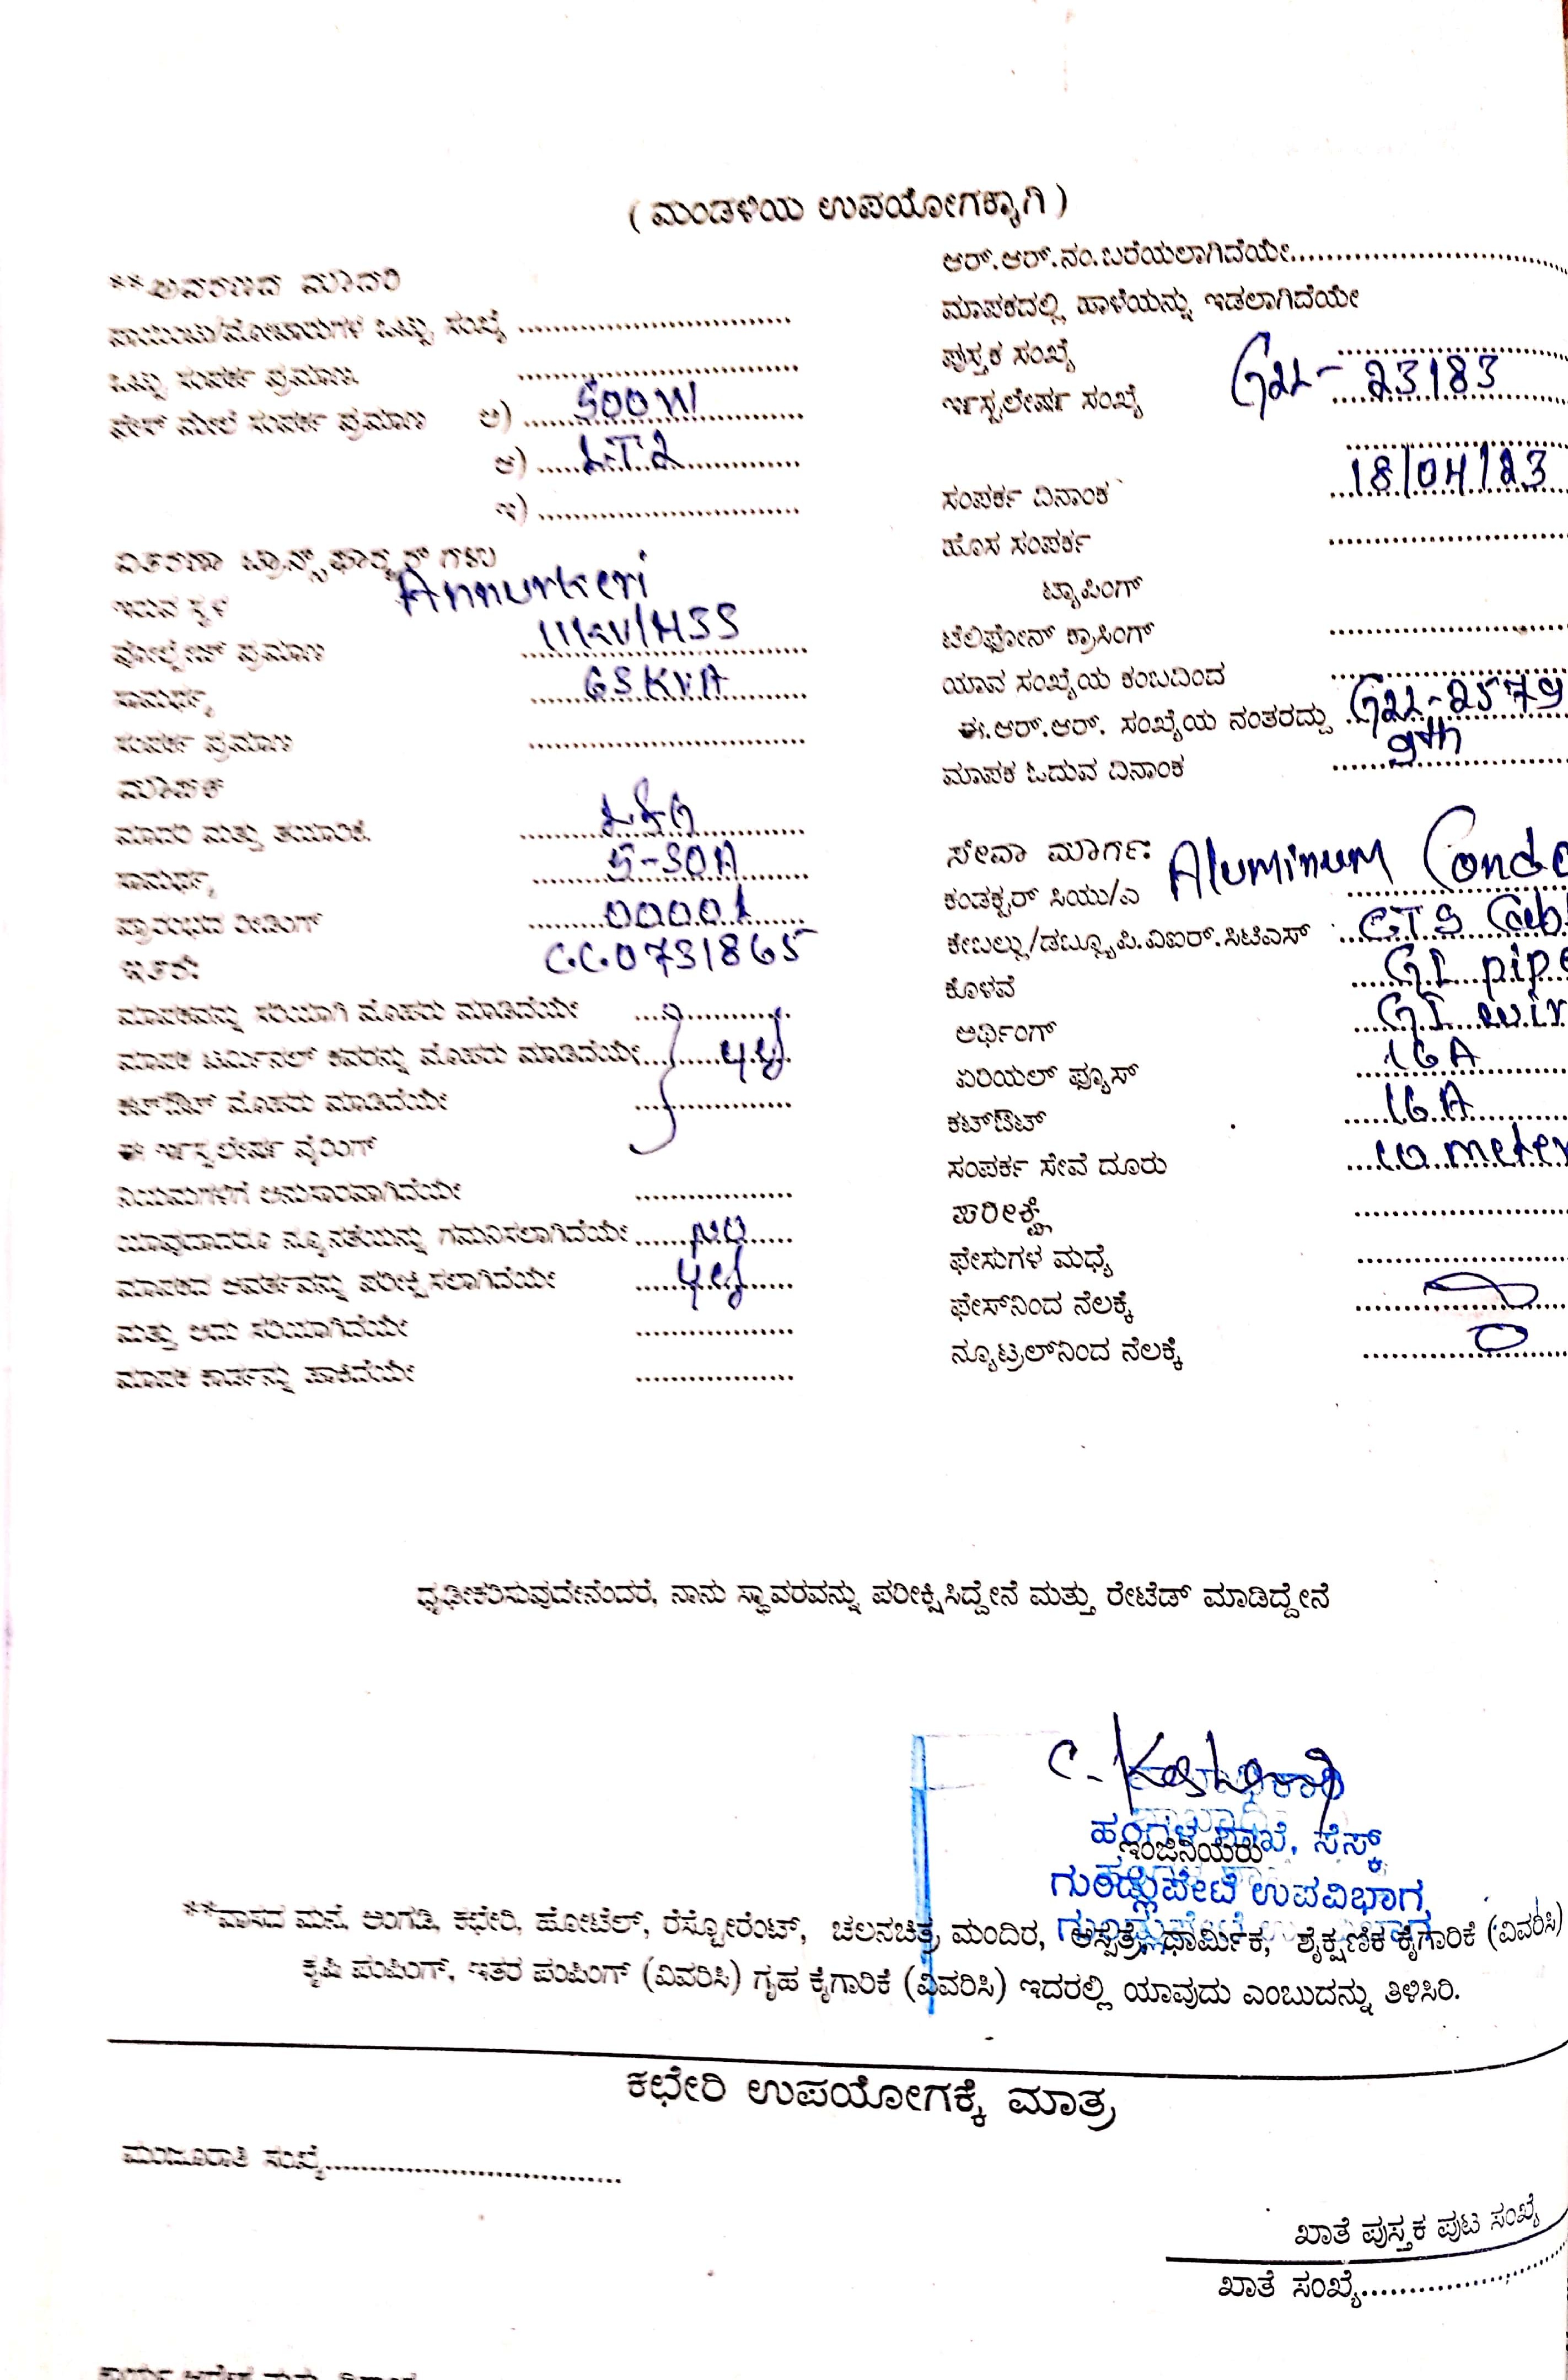 ( ಮಂಡಳಿಯ ಉಪಯೋಗಕ್ಕಾಗಿ )
**ಆವರಣದ ಮಾದರಿ
ಪಾಯಿಂಟು/ಮೋಟಾರುಗಳ ಒಟ್ಟು ಸಂಖ್ಯೆ ....................
ಒಟ್ಟು ಸಂಪರ್ಕ ಪ್ರಮಾಣ ....................
ಫೇಸ್ ಮೇಲೆ ಸಂಪರ್ಕ ಪ್ರಮಾಣ ಅ) 500W
ಆ) LT2
ಇ) ....................
ವಿತರಣಾ ಟ್ರಾನ್ಸ್‌ಫಾರ್ಮರ್ ಗಳು
ಇರುವ ಸ್ಥಳ Annurkeri
ವೋಲ್ಟೇಜ್ ಪ್ರಮಾಣ 11KV/HSS
ಸಾಮರ್ಥ್ಯ 63KVA
ಸಂಪರ್ಕ ಪ್ರಮಾಣ ....................
ಮಾಪಕ
ಮಾದರಿ ಮತ್ತು ತಯಾರಿಕೆ L&G
ಸಾಮರ್ಥ್ಯ 5-30A
ಪ್ರಾರಂಭದ ರೀಡಿಂಗ್ 00001
ಇತರೆ: C.C.0731865
ಮಾಪಕವನ್ನು ಸರಿಯಾಗಿ ಮೊಹರು ಮಾಡಿದೆಯೇ
ಮಾಪಕ ಟರ್ಮಿನಲ್ ಕವರನ್ನು ಮೊಹರು ಮಾಡಿದೆಯೇ yes
ಕಟ್‌ಔಟ್ ಮೊಹರು ಮಾಡಿದೆಯೇ
ಈ ಇನ್‌ಸ್ಟಲೇಷನ್ ವೈರಿಂಗ್
ನಿಯಮಗಳಿಗೆ ಅನುಸಾರವಾಗಿದೆಯೇ ....................
ಯಾವುದಾದರೂ ನ್ಯೂನತೆಯನ್ನು ಗಮನಿಸಲಾಗಿದೆಯೇ NO
ಮಾಪಕದ ಆವರ್ತವನ್ನು ಪರೀಕ್ಷಿಸಲಾಗಿದೆಯೇ yes
ಮತ್ತು ಅದು ಸರಿಯಾಗಿದೆಯೇ ....................
ಮಾಪಕ ಕಾರ್ಡನ್ನು ಹಾಕಿದೆಯೇ ....................
ಆರ್.ಆರ್.ನಂ.ಬರೆಯಲಾಗಿದೆಯೇ....................
ಮಾಪಕದಲ್ಲಿ ಹಾಳೆಯನ್ನು ಇಡಲಾಗಿದೆಯೇ
ಪುಸ್ತಕ ಸಂಖ್ಯೆ ....................
ಇನ್‌ಸ್ಟಲೇಷನ್ ಸಂಖ್ಯೆ G2L-23183
ಸಂಪರ್ಕ ದಿನಾಂಕ 18/04/23
ಹೊಸ ಸಂಪರ್ಕ ....................
ಟ್ಯಾಪಿಂಗ್
ಟೆಲಿಫೋನ್ ಕ್ರಾಸಿಂಗ್ ....................
ಯಾವ ಸಂಖ್ಯೆಯ ಕಂಬದಿಂದ ....................
ಈ.ಆರ್.ಆರ್. ಸಂಖ್ಯೆಯ ನಂತರದ್ದು G2L-2579
ಮಾಪಕ ಓದುವ ದಿನಾಂಕ 9th
ಸೇವಾ ಮಾರ್ಗ:
ಕಂಡಕ್ಟರ್ ಸಿಯು/ಎ Aluminum Condc
ಕೇಬಲ್ಲು/ಡಬ್ಲ್ಯೂಪಿ.ವಿಐರ್.ಸಿಟಿಎಸ್ CTS Cabl
ಕೊಳವೆ GI pipe
ಅರ್ಥಿಂಗ್ GI wir
ಏರಿಯಲ್ ಫ್ಯೂಸ್ 16A
ಕಟ್‌ಔಟ್ 16A
ಸಂಪರ್ಕ ಸೇವೆ ದೂರು 10 meter
ಪರೀಕ್ಷೆ ....................
ಫೇಸುಗಳ ಮಧ್ಯೆ ....................
ಫೇಸ್‌ನಿಂದ ನೆಲಕ್ಕೆ ....................
ನ್ಯೂಟ್ರಲ್‌ನಿಂದ ನೆಲಕ್ಕೆ ....................
ಧೃಢೀಕರಿಸುವುದೇನೆಂದರೆ, ನಾನು ಸ್ಥಾವರವನ್ನು ಪರೀಕ್ಷಿಸಿದ್ದೇನೆ ಮತ್ತು ರೇಟೆಡ್ ಮಾಡಿದ್ದೇನೆ
ಹಂಗಳ ಶಾಖೆ, ಸೆಸ್ಕ್
ಇಂಜಿನಿಯರು
ಗುಂಡ್ಲುಪೇಟೆ ಉಪವಿಭಾಗ,
**ವಾಸದ ಮನೆ, ಅಂಗಡಿ, ಕಛೇರಿ, ಹೋಟೆಲ್, ರೆಸ್ಟೋರೆಂಟ್, ಚಲನಚಿತ್ರ ಮಂದಿರ, ಆಸ್ಪತ್ರೆ, ಧಾರ್ಮಿಕ, ಶೈಕ್ಷಣಿಕ ಕೈಗಾರಿಕೆ (ವಿವರಿಸಿ)
ಕೃಷಿ ಪಂಪಿಂಗ್, ಇತರ ಪಂಪಿಂಗ್ (ವಿವರಿಸಿ) ಗೃಹ ಕೈಗಾರಿಕೆ (ವಿವರಿಸಿ) ಇದರಲ್ಲಿ ಯಾವುದು ಎಂಬುದನ್ನು ತಿಳಿಸಿರಿ.
ಕಛೇರಿ ಉಪಯೋಗಕ್ಕೆ ಮಾತ್ರ
ಮಂಜೂರಾತಿ ಸಂಖ್ಯೆ....................
ಖಾತೆ ಪುಸ್ತಕ ಪುಟ ಸಂಖ್ಯೆ
ಖಾತೆ ಸಂಖ್ಯೆ....................